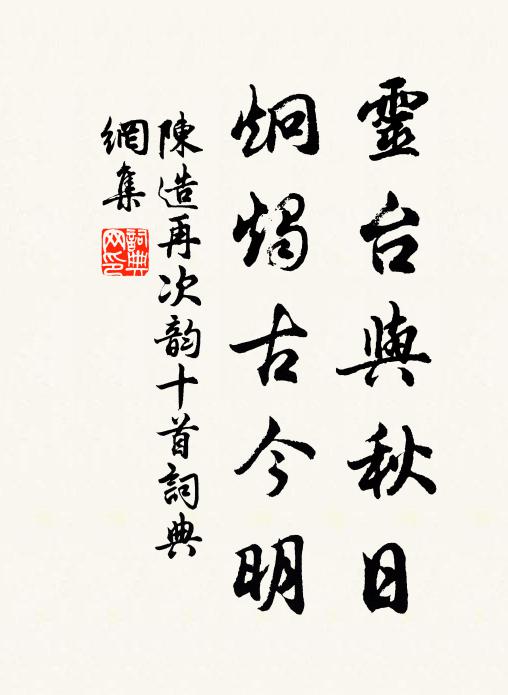 靈台與秋日
炯燭古今明
陳造再次韵十首詞典
網集
詞典
网印